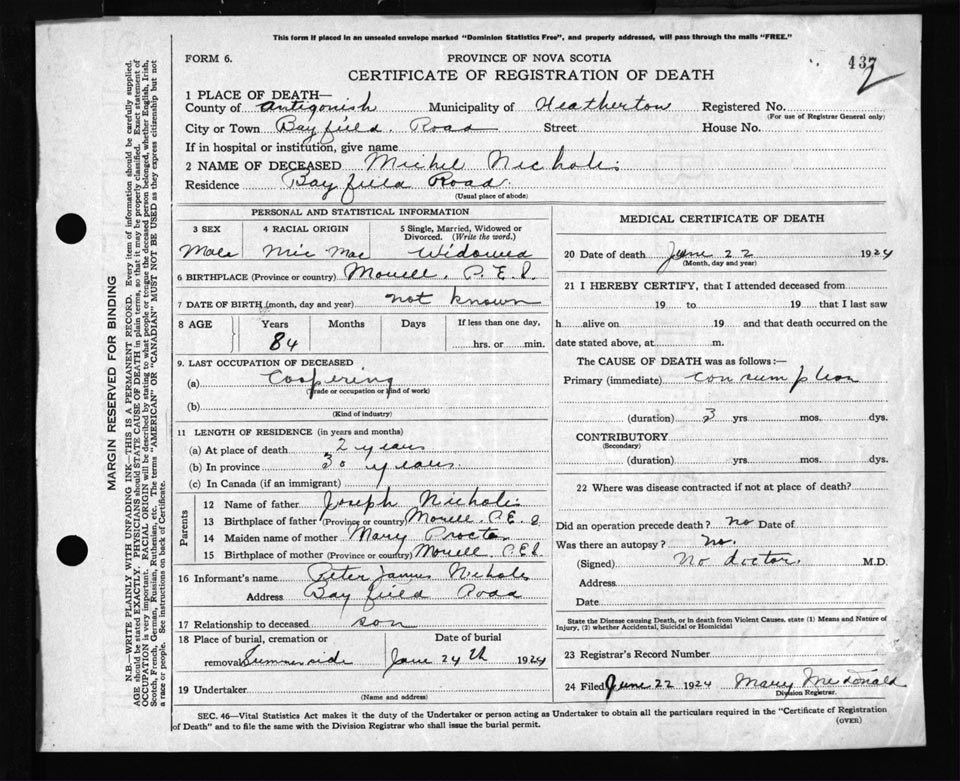 This form if placed in an unsealed envelope marked "Dominion Statistics Free", and properly addressed, will pass through the mails "FREE."
FORM 6.
PROVINCE OF NOVA SCOTIA
437
CERTIFICATE OF REGISTRATION OF DEATH
1 PLACE OF DEATH—
County of Antigonish Municipality of Heatherton Registered No.
(For use of Registrar General only)
City or Town Bayfield Road Street House No.
If in hospital or institution, give name
2 NAME OF DECEASED Michel Nicholis
Residence Bayfield Road
(Usual place of abode)
PERSONAL AND STATISTICAL INFORMATION
3 SEX 4 RACIAL ORIGIN 5 Single, Married, Widowed or Divorced. (Write the word.)
Male Mic Mac Widowed
6 BIRTHPLACE (Province or country) Morell, P.E.I.
7 DATE OF BIRTH (month, day and year) not known
8 AGE Years Months Days If less than one day,
84 hrs. or min.
9. LAST OCCUPATION OF DECEASED
(a) Coopering
(Trade or occupation or kind of work)
(b)
(Kind of industry)
11 LENGTH OF RESIDENCE (in years and months)
(a) At place of death 2 years
(b) In province 30 years
(c) In Canada (if an immigrant)
Parents
12 Name of father Joseph Nicholis
13 Birthplace of father (Province or country) Morell, P.E.I.
14 Maiden name of mother Mary Procter
15 Birthplace of mother (Province or country) Morell P.E.I.
16 Informant's name Peter James Nicholis
Address Bayfield Road
17 Relationship to deceased son
18 Place of burial, cremation or Date of burial
removal Summerside June 24th 1924
19 Undertaker
(Name and address)
MEDICAL CERTIFICATE OF DEATH
20 Date of death June 22 1924
(Month, day and year)
21 I HEREBY CERTIFY, that I attended deceased from
19 to 19 that I last saw
h alive on 19 and that death occurred on the
date stated above, at m.
The CAUSE OF DEATH was as follows:—
Primary (immediate) consumption
(duration) 3 yrs mos. dys.
CONTRIBUTORY
(Secondary)
(duration) yrs. mos. dys.
22 Where was disease contracted if not at place of death?
Did an operation precede death? no Date of
Was there an autopsy? no.
(Signed) No doctor. M.D.
Address
Date
State the Disease causing Death, or in death from Violent Causes, state (1) Means and Nature of
Injury, (2) whether Accidental, Suicidal or Homicidal
23 Registrar's Record Number
24 Filed June 22 1924 Mary McDonald
Division Registrar.
SEC. 46—Vital Statistics Act makes it the duty of the Undertaker or person acting as Undertaker to obtain all the particulars required in the "Certificate of Registration
of Death" and to file the same with the Division Registrar who shall issue the burial permit.
(OVER)
MARGIN RESERVED FOR BINDING
N.B.—WRITE PLAINLY WITH UNFADING INK—THIS IS A PERMANENT RECORD. Every item of information should be carefully supplied.
AGE should be stated EXACTLY. PHYSICIANS should STATE CAUSE OF DEATH in plain terms, so that it may be properly classified. Exact statement of
OCCUPATION is very important. RACIAL ORIGIN will be described by stating to what people or tongue the deceased person belonged, whether English, Irish,
Scotch, French, German, Russian, Ruthenian, etc. The terms "AMERICAN" OR "CANADIAN" MUST NOT BE USED as they express citizenship but not
a race or people. See instructions on back of Certificate.